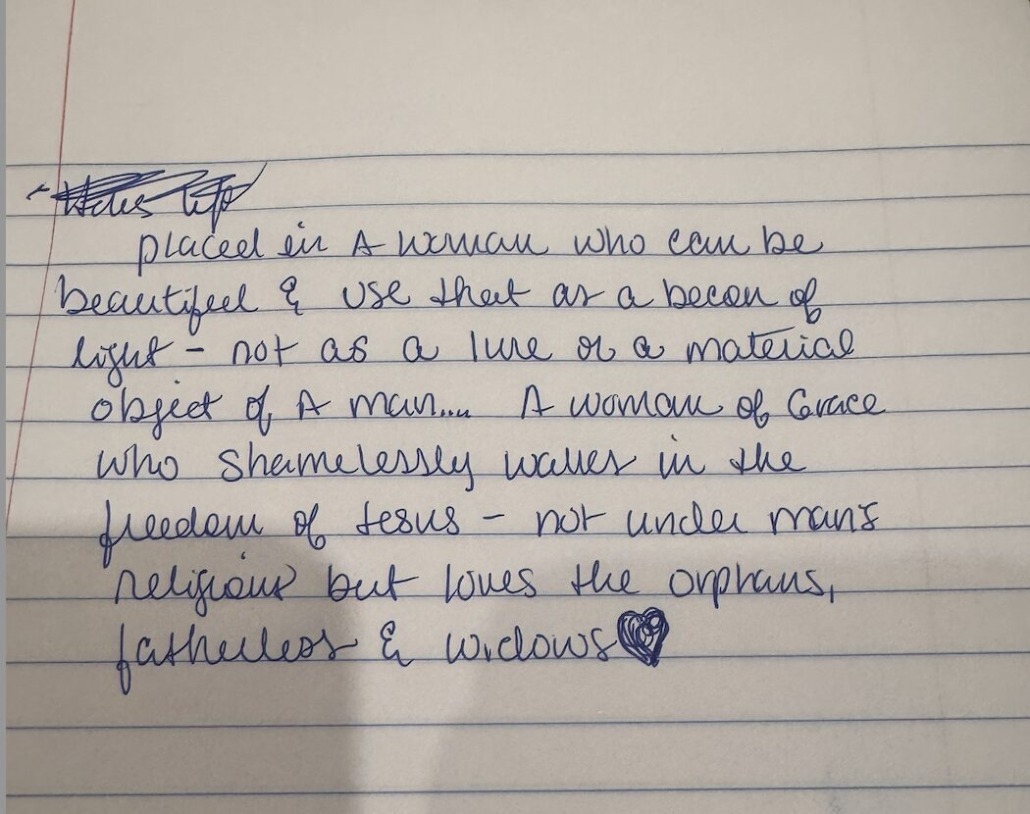 placed in A woman who can be
beautiful & use that as a becon of
light - not as a lure or a material
object of A man.... A woman of Grace
who shamelessly walks in the
freedom of Jesus - not under man's
religious but loves the orphans,
fatherless & widows